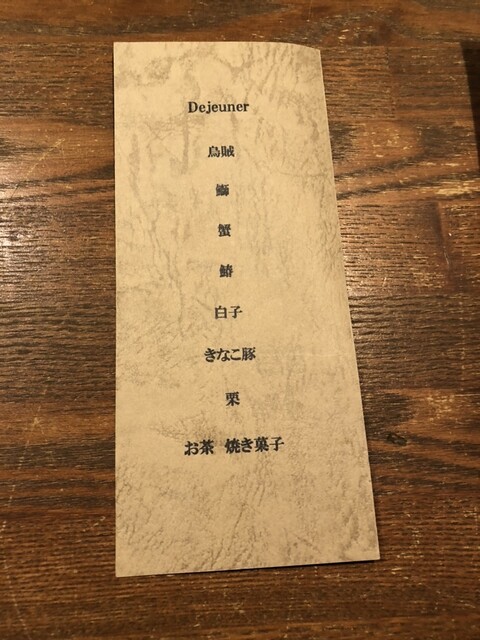 Dejeuner
烏賊
鰤
蟹
鰆
白子
きなこ豚
栗
お茶 焼き菓子